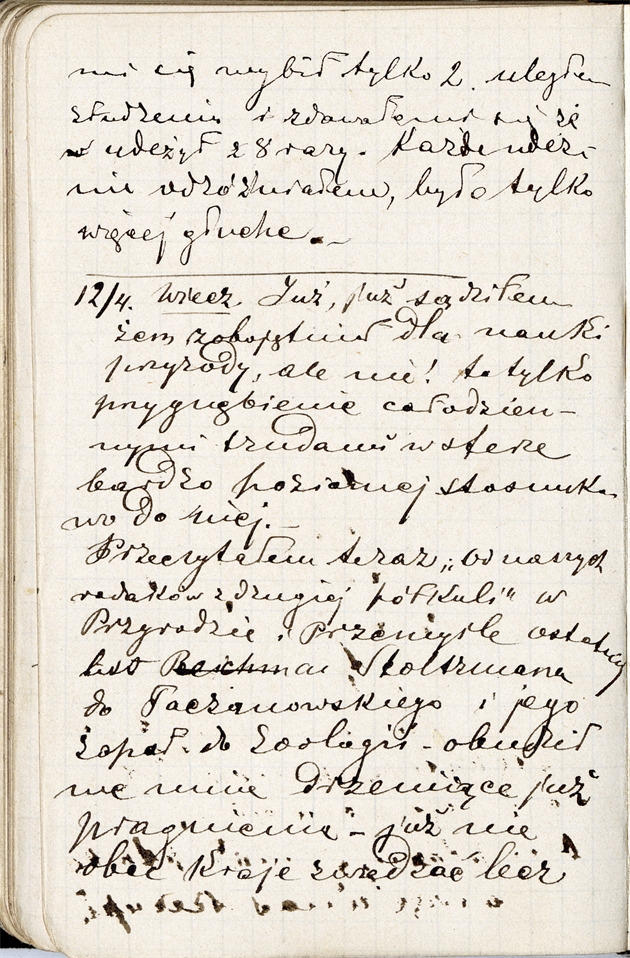 mi się wybił tylko 2. uległem
złudzeniu i zdawało mi się że
uderzył 28 razy. Każde uderze-
nie odróżniałem, było tylko
więcej głuche.
12/4. Wiecz. Już, już sądziłem
żem zobojętniał dla nauki
przyrody, ale nie! to tylko
przygnębienie całodzien-
nymi trudami w sferze
bardzo poziomej stosunko
wo do niej.
Przeczytałem teraz „Od naszych
rodaków z drugiej półkuli" w
Przyrodzie i Przemyśle ostatni
list Reichman Stoltzmana
do Taczanowskiego i jego
zapał do Zoologii - obudził
we mnie drzemiące już
pragnienia - już nie
obce kraje zwiedzać lecz